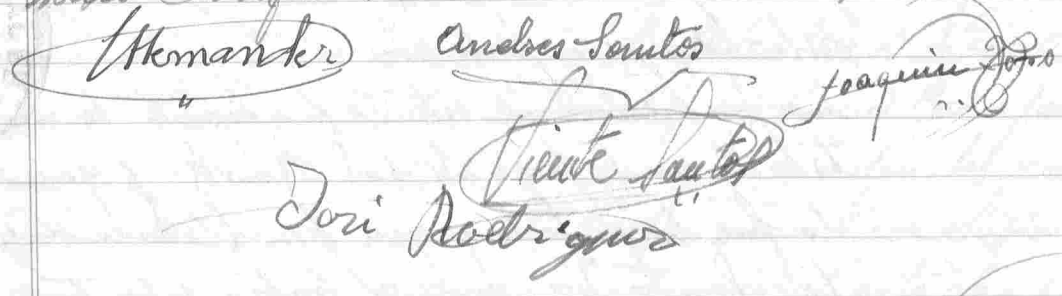 Hernandez Andres Santos Joaquin
Vicente Santos
José Rodriguez